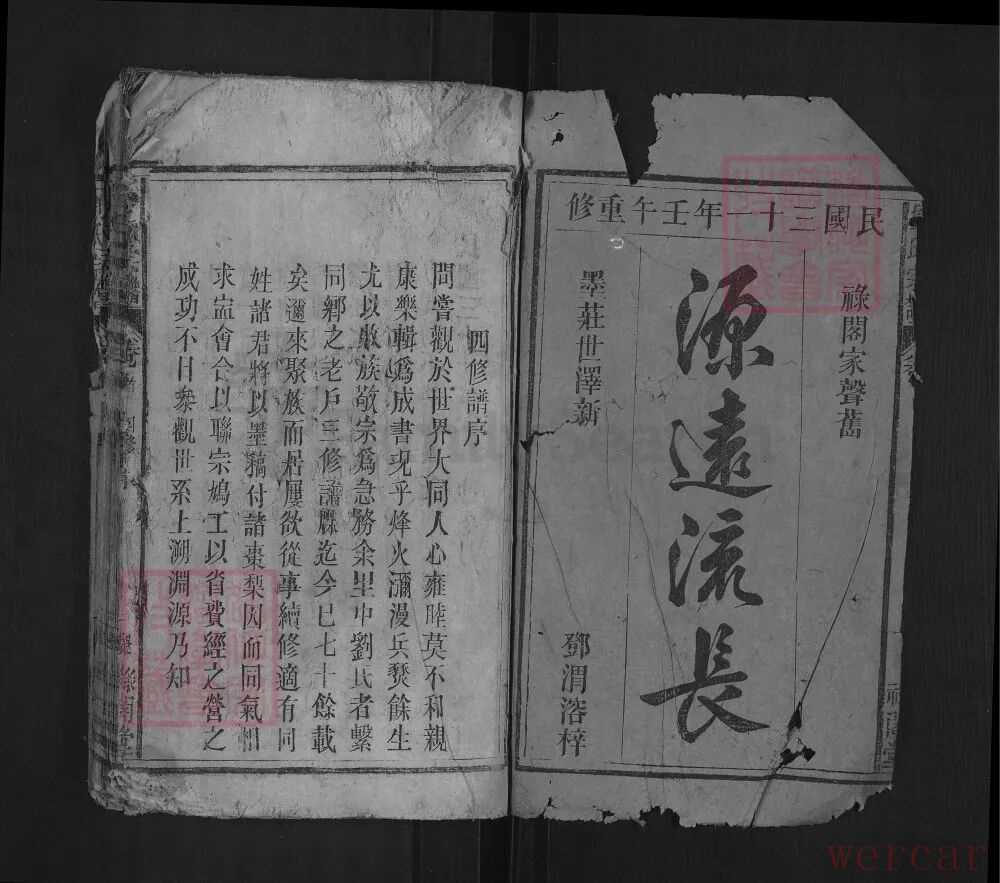 民國三十一年壬午重修
祿閣家聲舊
源遠流長
墨莊世澤新
鄧渭溶梓
四修譜序
間嘗觀於世界大同人心雍睦莫不和親
康樂輯爲成書現乎烽火瀰漫兵燹餘生
尤以收族敬宗爲急務余里中劉氏者繫
同鄉之老戶三修譜牒迄今已七十餘載
矣邇來聚族而居屢欲從事續修適有同
姓諸君將以墨稿付諸棗梨因而同氣相
求盍會合以聯宗鳩工以省費經之營之
成功不日衆觀世系上溯淵源乃知
wercar